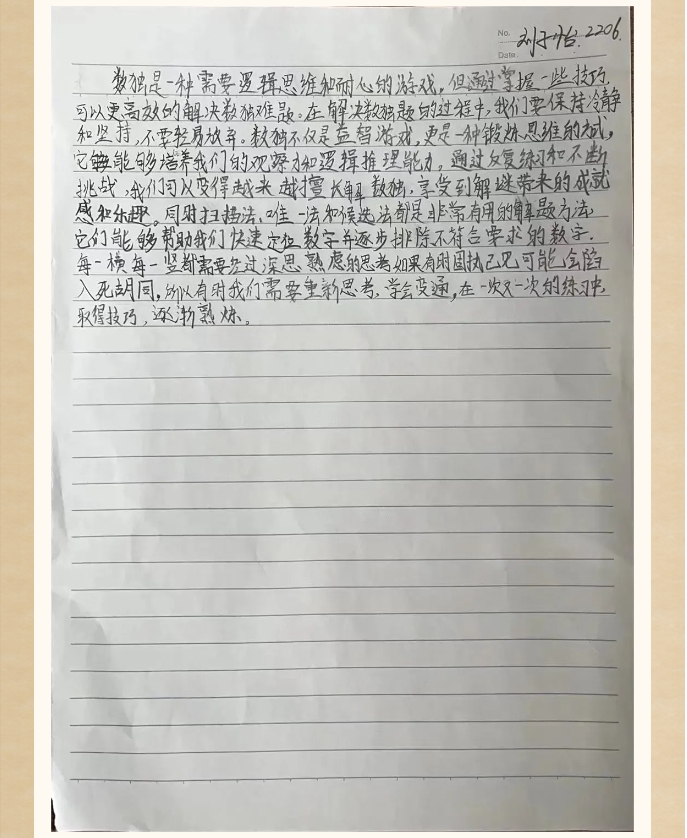 No.
刘子怡. 2206.
Date
数独是一种需要逻辑思维和耐心的游戏，但通过掌握一些技巧，
可以更高效的解决数独难题。在解决数独题的过程中，我们要保持冷静
和坚持，不要轻易放弃。数独不仅是益智游戏，更是一种锻炼思维的方式，
它能够培养我们的观察力和逻辑推理能力，通过反复练习和不断
挑战，我们可以变得越来越擅长解数独，享受到解谜带来的成就
感和乐趣。同时扫描法，唯一法和候选法都是非常有用的解题方法
它们能够帮助我们快速定位数字并逐步排除不符合要求的数字.
每一横每一竖都需要经过深思熟虑的思考如果有时固执己见可能会陷
入死胡同，所以有时我们需要重新思考，学会变通，在一次又一次的练习中，
取得技巧，逐渐熟炼。